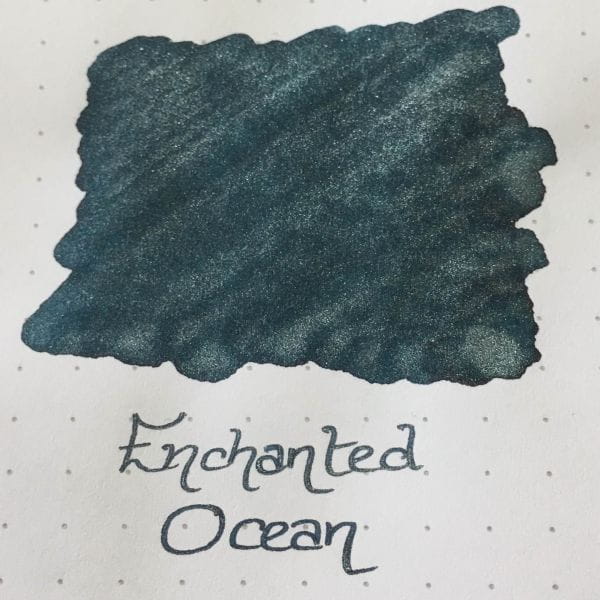 Enchanted
Ocean